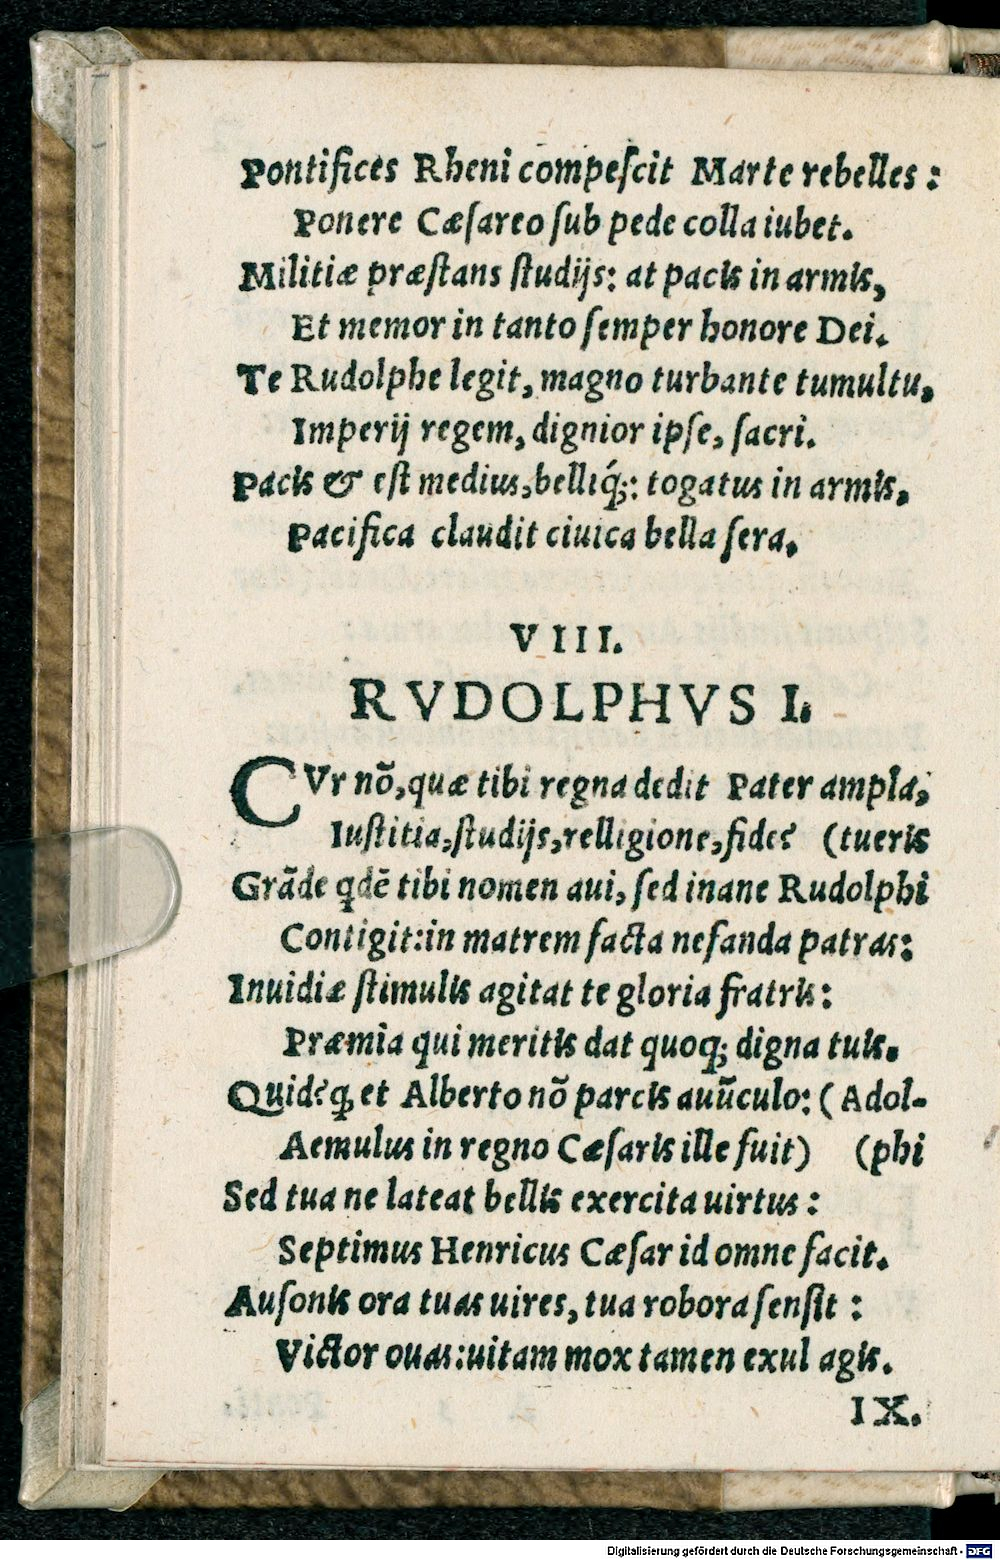 Pontifices Rheni compeſcit Marte rebelles :
Ponere Cæſareo ſub pede colla iubet.
Militiæ præſtans ſtudijs: at pacis in armis,
Et memor in tanto ſemper honore Dei.
Te Rudolphe legit, magno turbante tumultu,
Imperij regem, dignior ipſe, ſacri.
Pacis & eſt medius, belliq́;: togatus in armis,
Pacifica claudit ciuica bella ſera.
VIII.
RVDOLPHVS I.
CVr nō, quæ tibi regna dedit Pater ampla,
Iuſtitia, ſtudijs, relligione, fide? (tueris
Grāde qdē tibi nomen aui, ſed inane Rudolphi
Contigit: in matrem facta nefanda patras:
Inuidiæ ſtimulis agitat te gloria fratris:
Præmia qui meritis dat quoq; digna tuis.
Quid? q̃ et Alberto nō parcis auūculo: (Adol-
Aemulus in regno Cæſaris ille fuit) (phi
Sed tua ne lateat bellis exercita uirtus :
Septimus Henricus Cæſar id omne facit.
Auſonis ora tuas uires, tua robora ſenſit :
Victor ouas: uitam mox tamen exul agis.
IX.
Digitalisierung gefördert durch die Deutsche Forschungsgemeinschaft - DFG